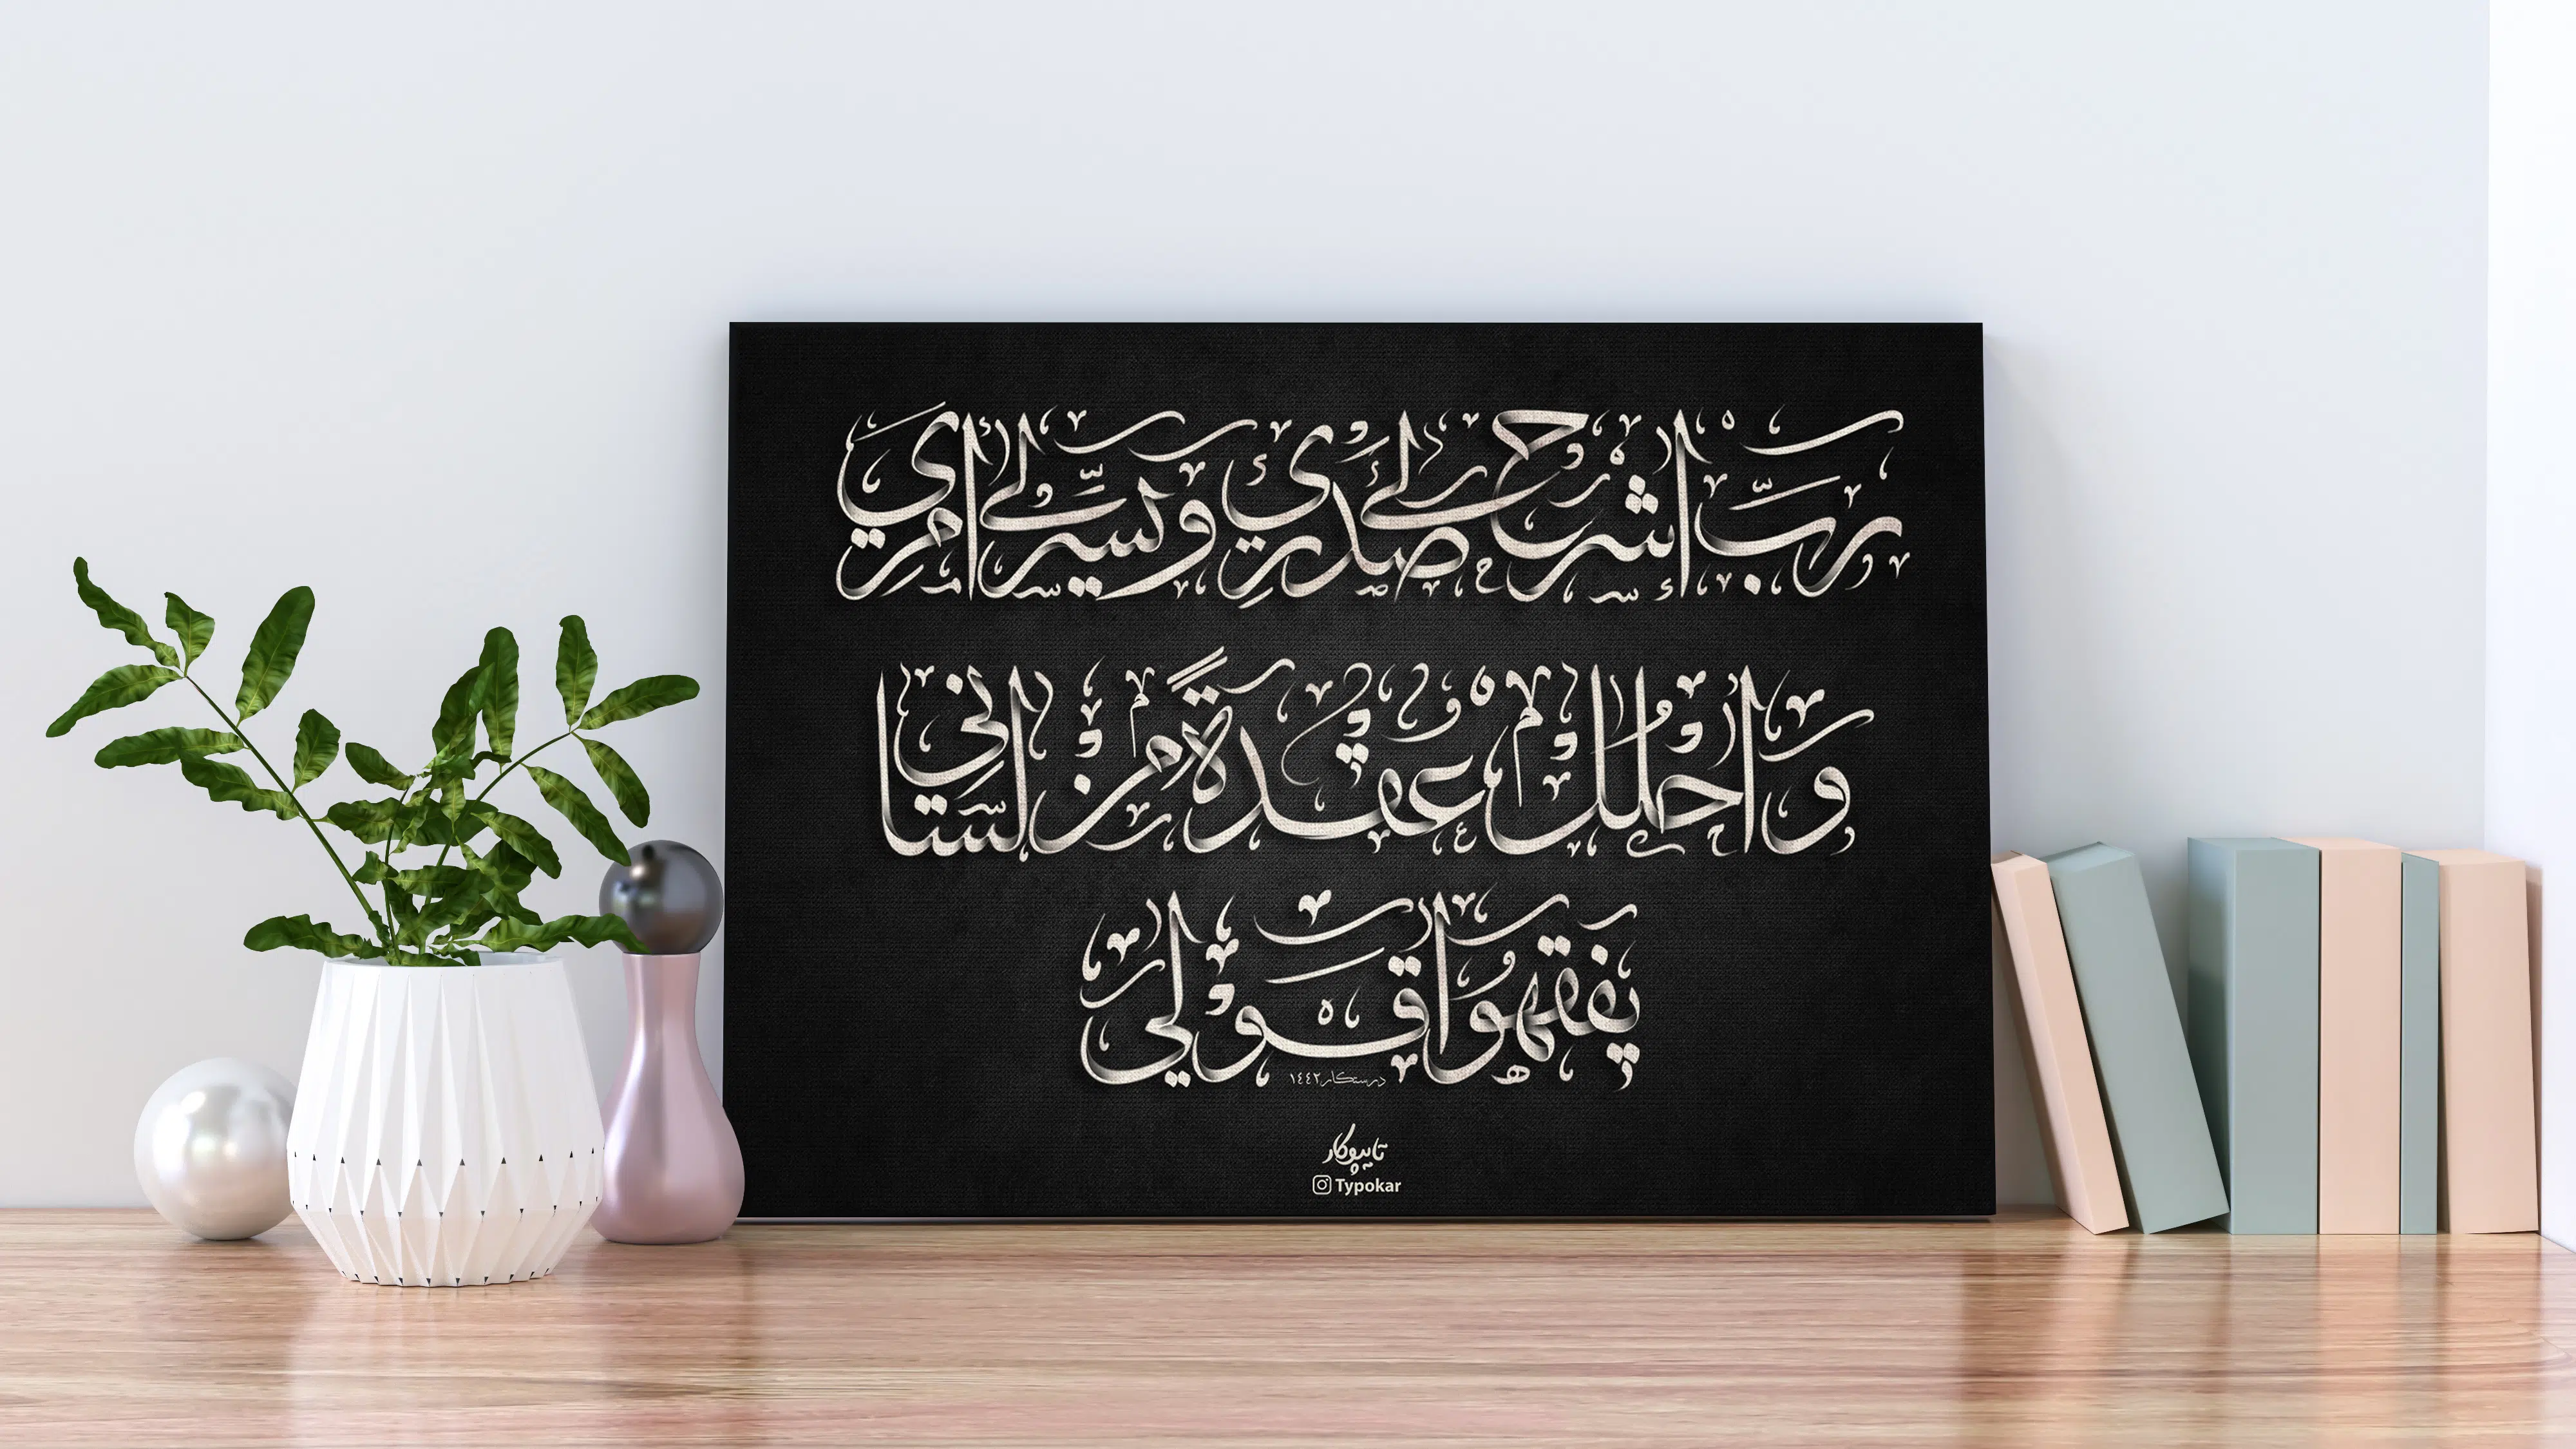 رَبِّ إشْرَحْ لِي صَدْرِي وَيَسِّرْ لِي أَمْرِي
وَاحْلُلْ عُقْدَةً مِنْ لِسَانِي
يَفْقَهُوا قَوْلِي
درستکار ۱٤٤۲
تایپوکار
Typokar